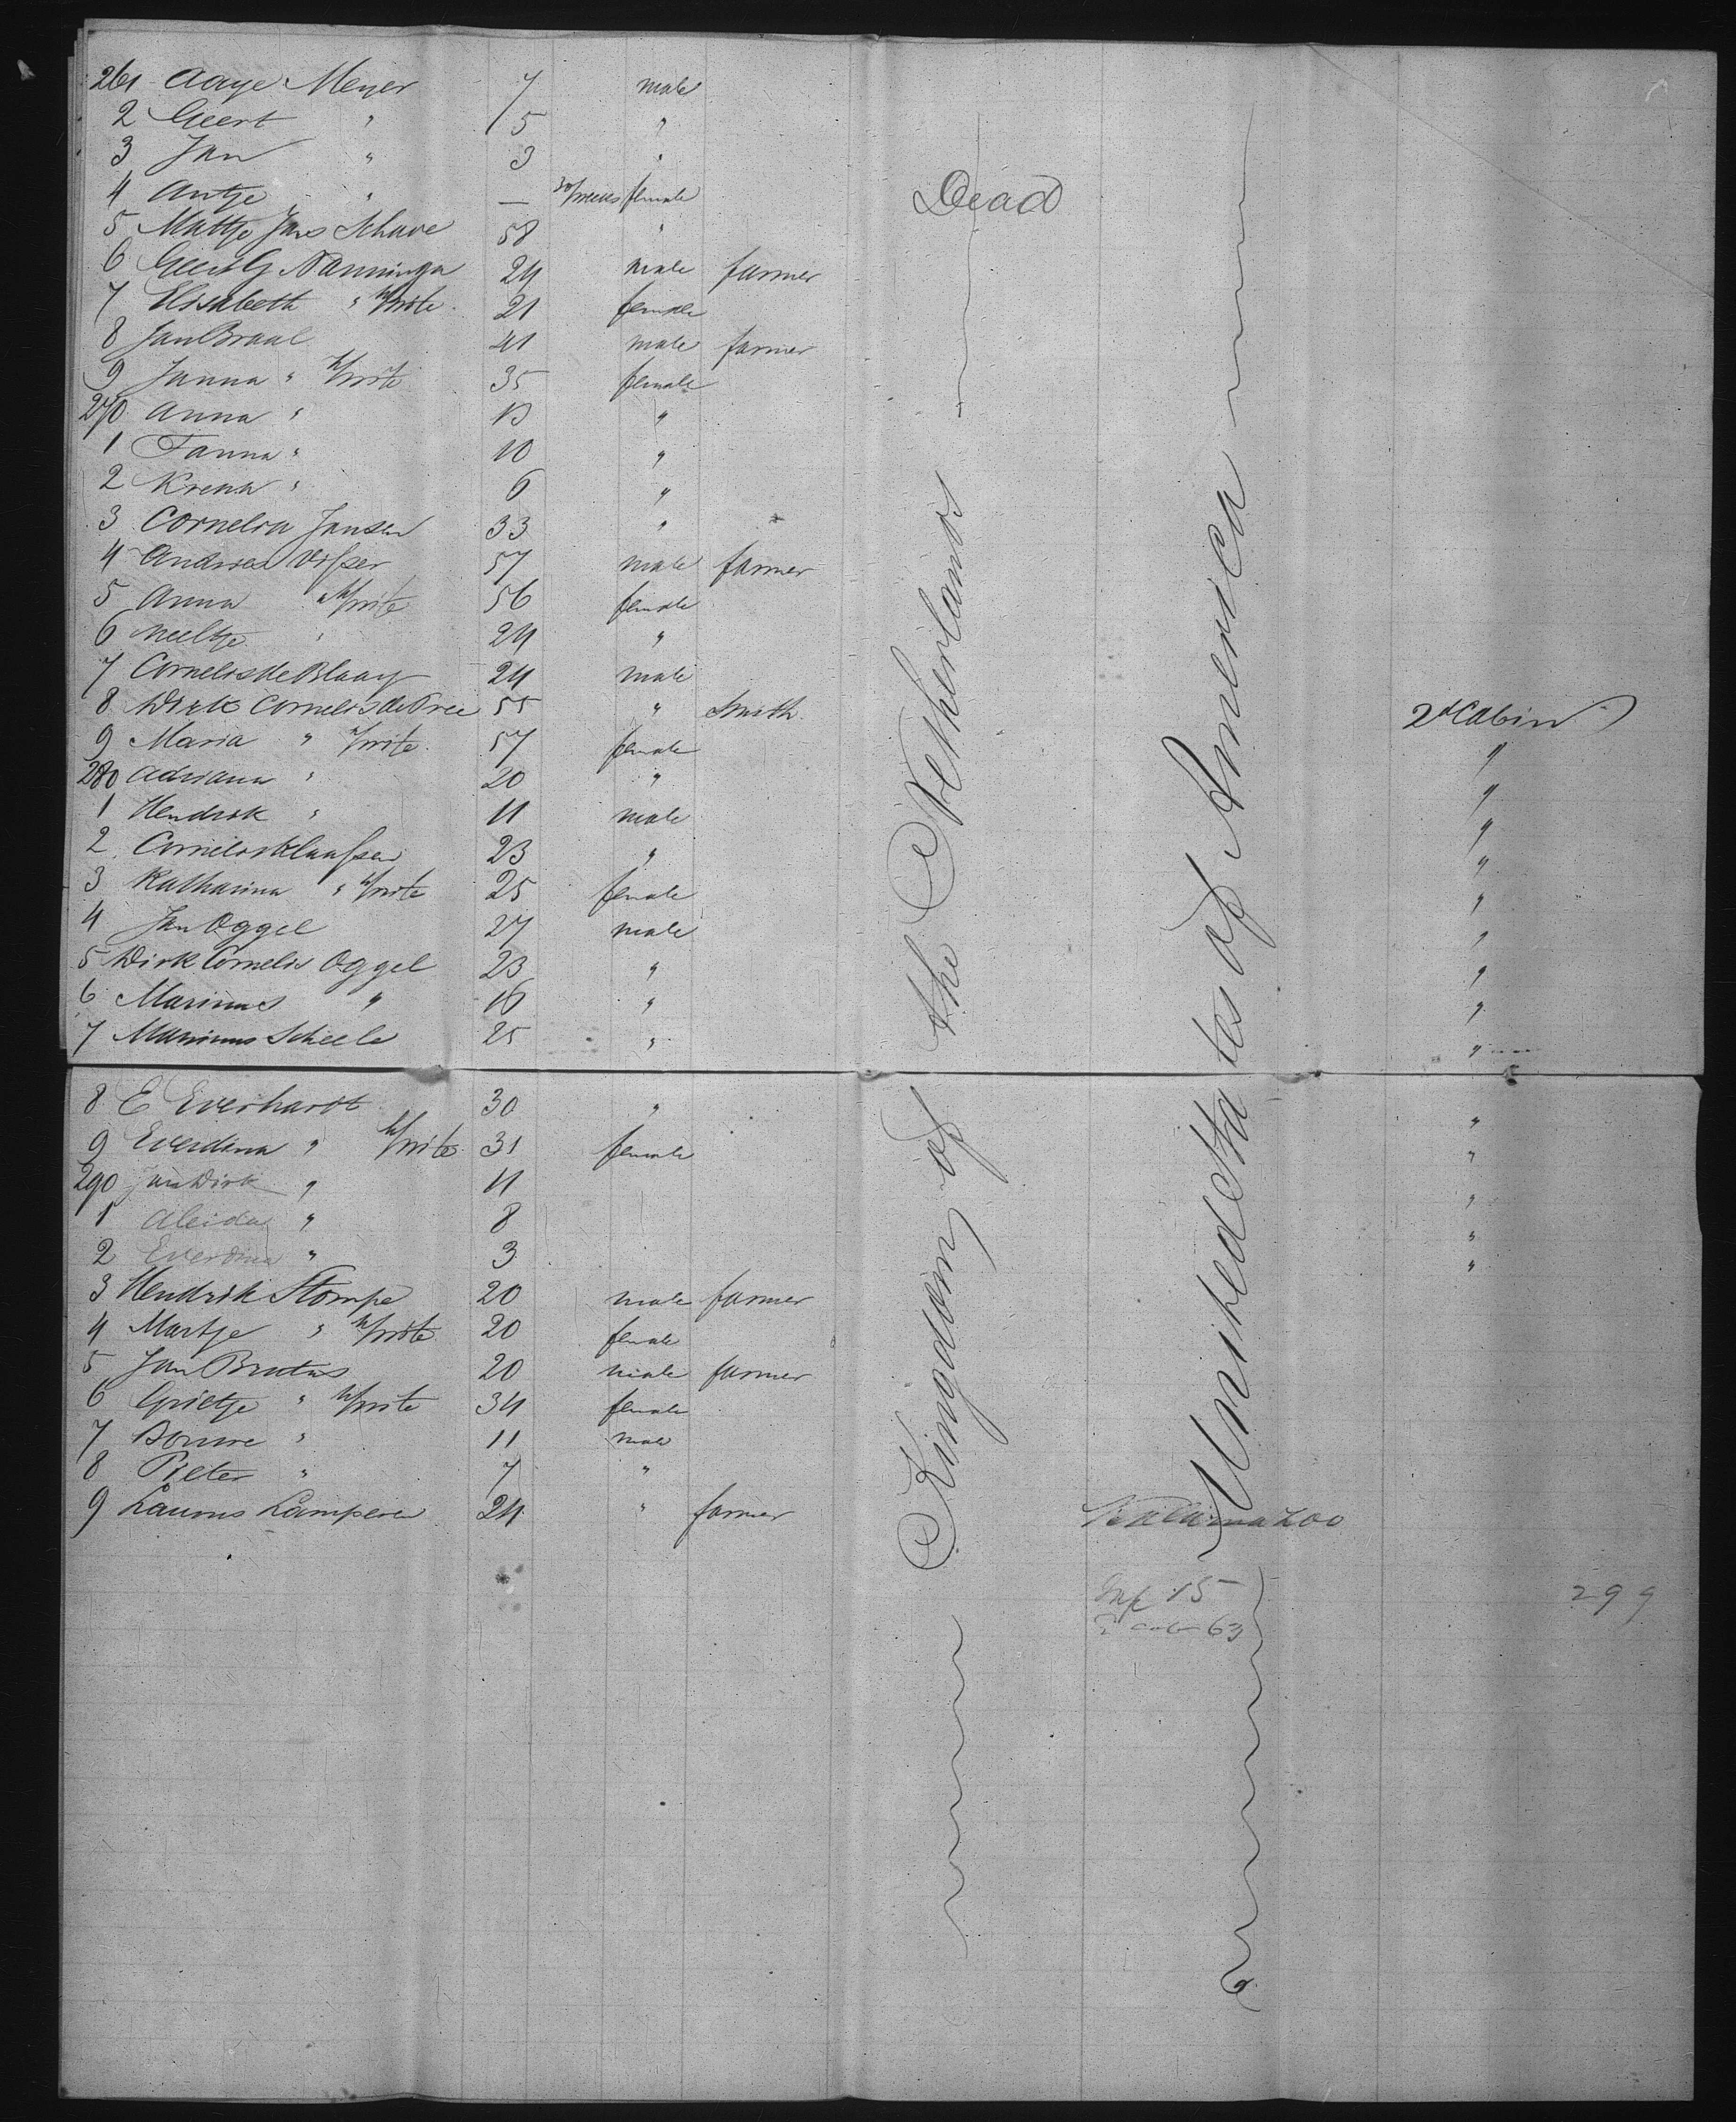 261 Aaye Meyer 7 male
2 Geert " 5 "
3 Jan " 3 "
4 Antje " — 30/weeks female Dead
5 Mattje Jans Schuve 58 "
6 Geert G Nanninga 24 male farmer
7 Elisabeth " h/wife 21 female
8 Jan Braal 41 male farmer
9 Janna " h/wife 35 female
270 Anna " 13 "
1 Fanna " 10 "
2 Krena " 6 "
3 Cornelia Jansen 33 "
4 Andries Visser 57 male farmer
5 Anna " h/wife 56 female
6 Neeltje " 24 "
7 Cornelis de Blaay 24 male
8 Dirk Cornelis de Pree 55 " Smith 2d Cabin
9 Maria " h/wife 57 female "
280 Adriana " 20 " "
1 Hendrik " 11 male "
2 Cornelis Klaassen 23 " "
3 Katharina " h/wife 25 female "
4 Jan Oggel 27 male "
5 Dirk Cornelis Oggel 23 " "
6 Marinus " 16 " "
7 Marinus Scheele 25 " "
8 E Everhardt 30 " "
9 Everdina " h/wife 31 female "
290 Jan Dirk " 11 "
1 Aleida " 8 "
2 Everdina " 3 "
3 Hendrik Stompe 20 male farmer
4 Martje " h/wife 20 female
5 Jan Brutus 20 male farmer
6 Grietje " h/wife 34 female
7 Douwe " 11 male
8 Pieter " 7 "
9 Laurus Lamperen 24 " farmer Kalamazoo
Kingdom of the Netherlands
United States of America
Inf 15
2 cab 63
299